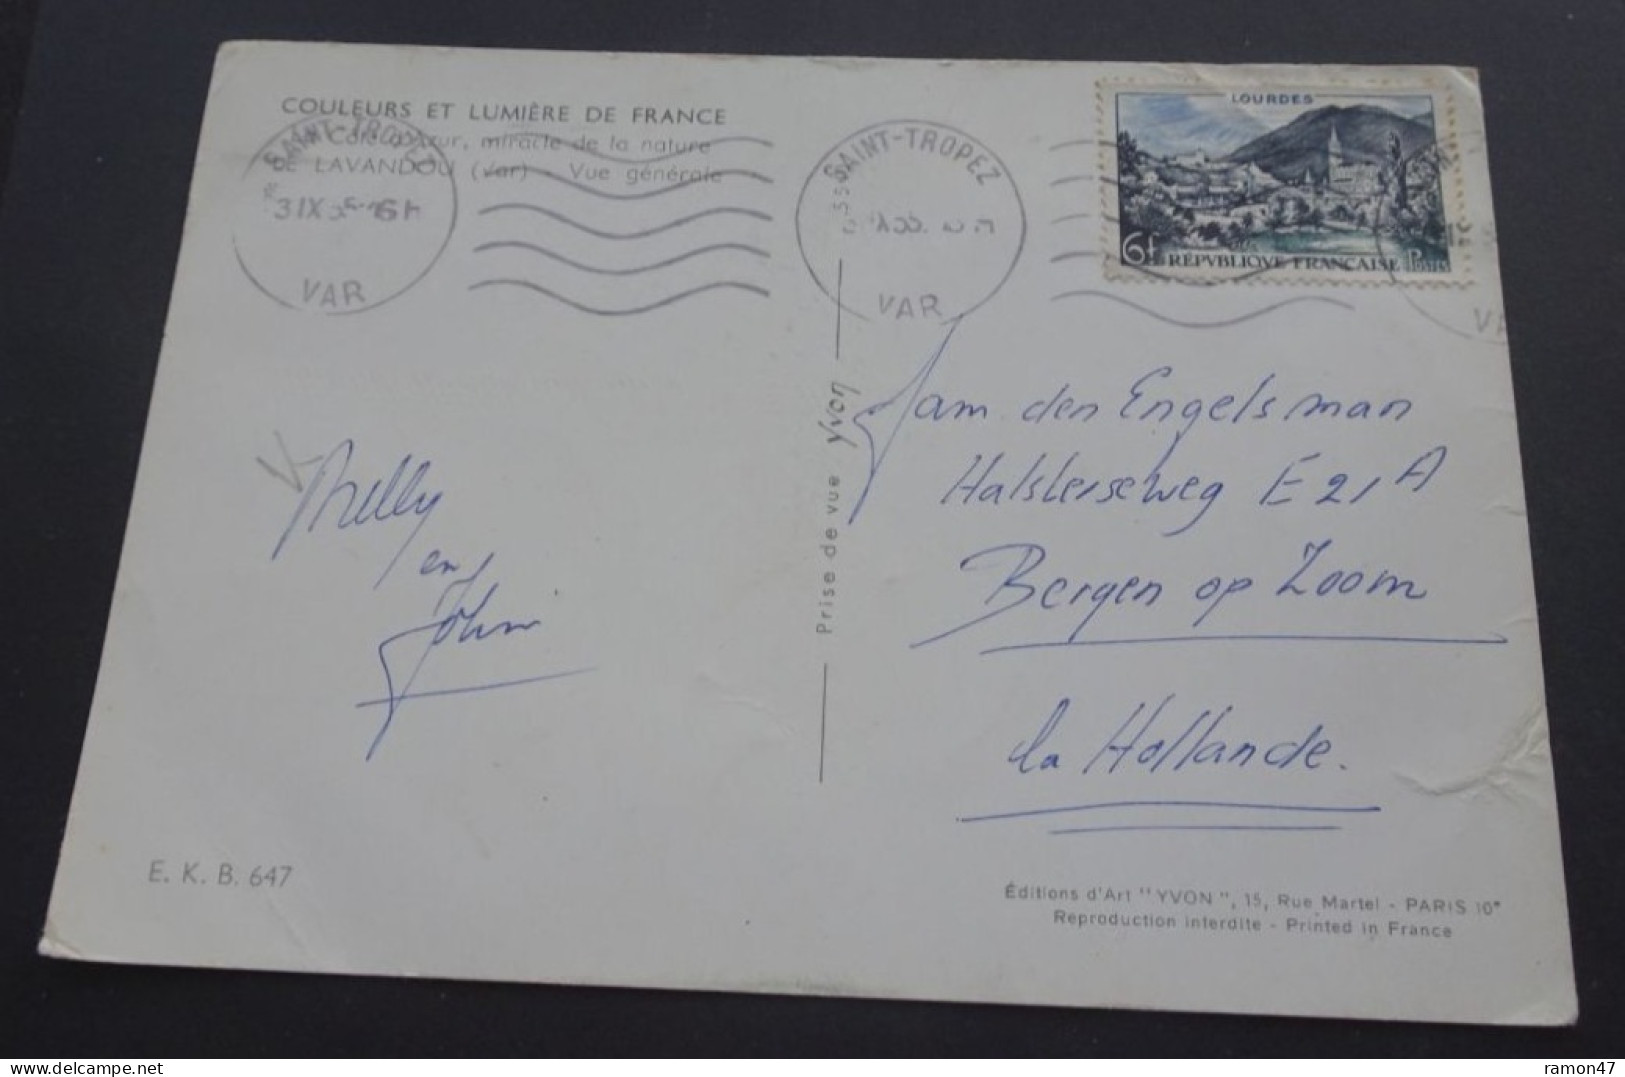 COULEURS ET LUMIÈRE DE FRANCE
Côte d'Azur, miracle de la nature
LAVANDOU (Var) - Vue générale
SAINT-TROPEZ
VAR
SAINT-TROPEZ
VAR
LOURDES
6f
RÉPVBLIQVE FRANÇAISE POSTES
Nelly
en
John
E. K. B. 647
Prise de vue Yvon
Fam den Engelsman
Halsterseweg E 21 A
Bergen op Zoom
la Hollande.
Éditions d'Art "YVON", 15, Rue Martel - PARIS 10e
Reproduction interdite - Printed in France
delcampe.net
ramon47